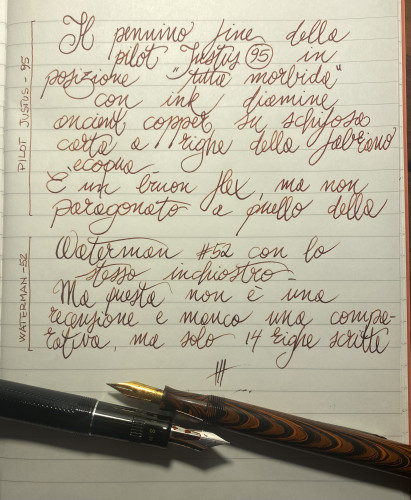 Il pennino fine della
pilot Justus 95 in
posizione "tutta morbida"
con ink diamine
ancient copper su schifosa
carta a righe della fabriano
ecoqua
È un buon flex, ma non
paragonato a quello della
Waterman #52 con lo
stesso inchiostro -
Ma questa non è una
recensione e manco una compa-
rativa, ma solo 14 righe scritte
PILOT JUSTUS - 95
WATERMAN - 52